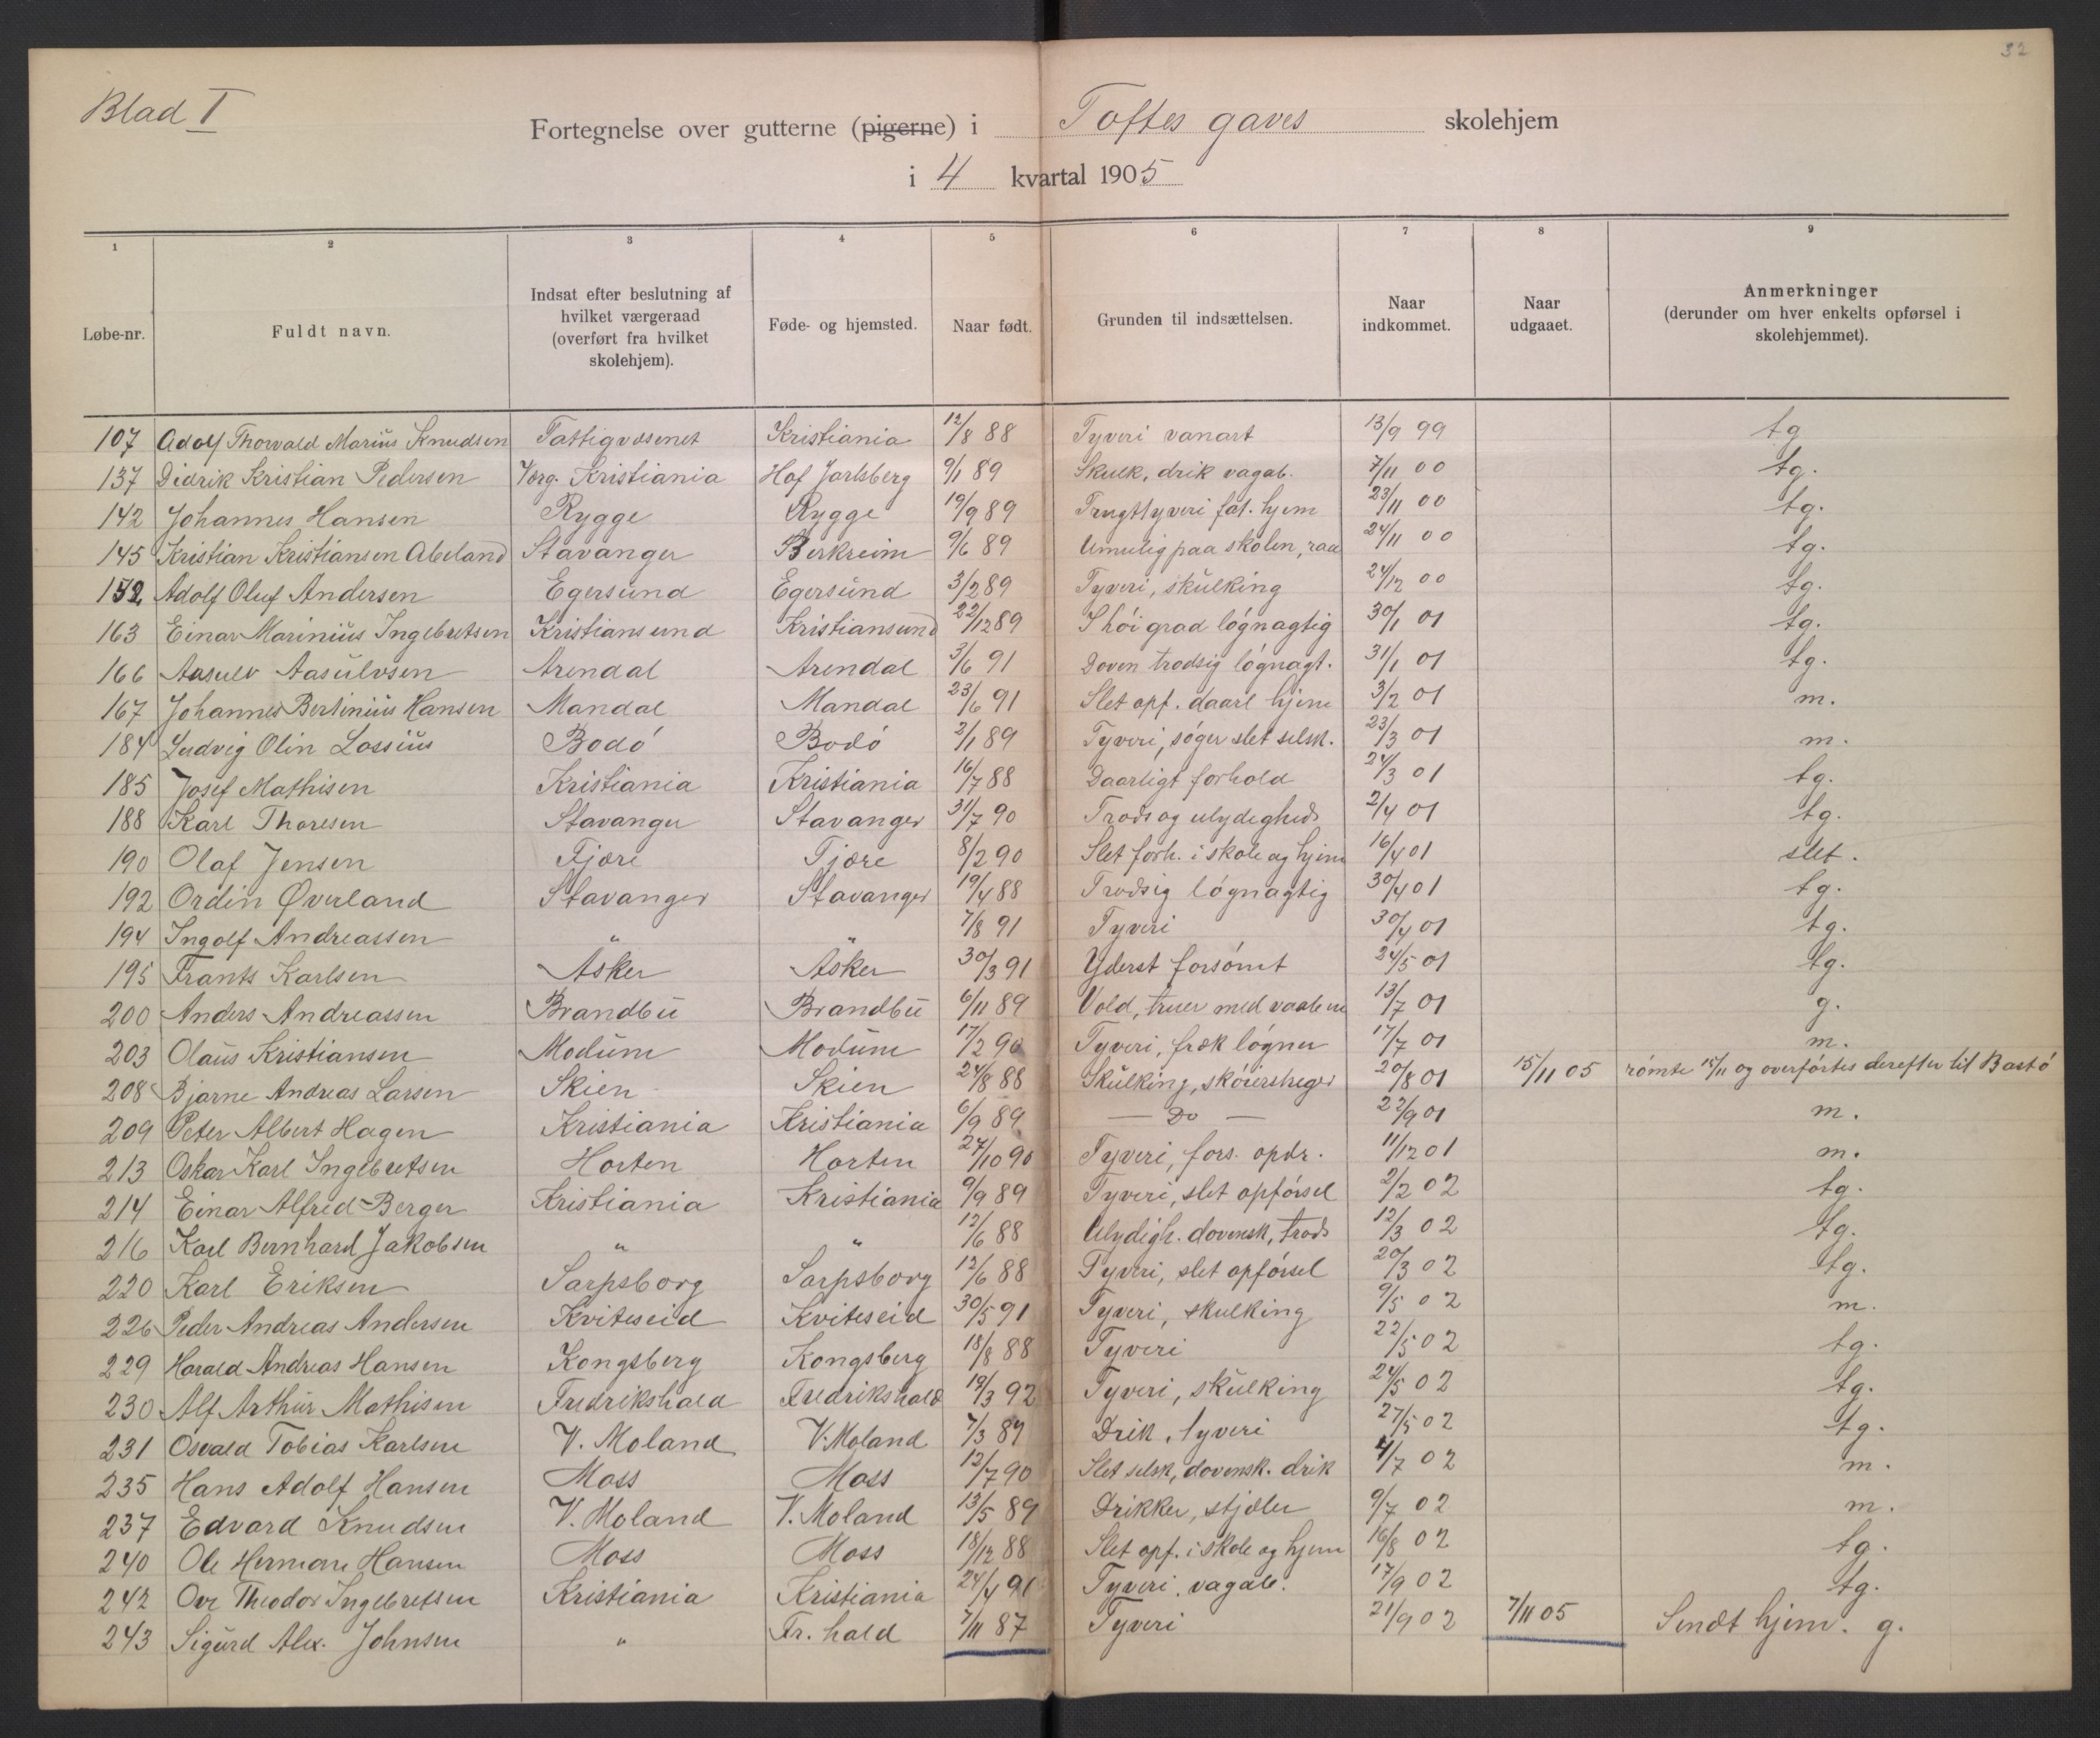 32
Blad I
Fortegnelse over gutterne (pigerne) i Toftes gaves skolehjem
i 4 kvartal 1905
1 2 3 4 5 6 7 8 9
Løbe-nr. Fuldt navn. Indsat efter beslutning af hvilket værgeraad (overført fra hvilket skolehjem). Føde- og hjemsted. Naar født. Grunden til indsættelsen. Naar indkommet. Naar udgaaet. Anmerkninger (derunder om hver enkelts opførsel i skolehjemmet).
107 Adolf Thorvald Marius Knudsen Fattigvæsenet Kristiania 12/8 88 Tyveri vanart 13/9 99 tg
137 Didrik Kristian Pedersen Værg. Kristiania Hof Jarlsberg 9/1 89 Skulk, drik vagab. 7/11 00 tg.
142 Johannes Hansen Rygge Rygge 19/9 89 Frugttyveri fat. hjem 23/11 00 tg.
145 Kristian Kristiansen Abeland Stavanger Berkreim 9/6 89 Umulig paa skolen, raa 24/11 00 tg.
152 Adolf Oluf Andersen Egersund Egersund 3/2 89 Tyveri, skulking 24/12 00 tg.
163 Einar Marinius Ingebretsen Kristiansund Kristiansund 22/12 89 I høi grad løgnagtig 30/1 01 tg.
166 Aasulv Aasulvsen Arendal Arendal 3/6 91 Doven trodsig løgnagt. 31/1 01 tg.
167 Johannes Bertinius Hansen Mandal Mandal 23/6 91 Slet opf. daarl hjem 3/2 01 m.
184 Ludvig Olin Lossius Bodø Bodø 2/1 89 Tyveri, søger slet selsk. 23/3 01 m.
185 Josef Mathisen Kristiania Kristiania 16/7 88 Daarligt forhold 24/3 01 tg.
188 Karl Thoresen Stavanger Stavanger 31/7 90 Trods og ulydighed 2/4 01 tg.
190 Olaf Jensen Fjære Fjære 8/2 90 Slet forh. i skole og hjem 16/4 01 slet.
192 Ordin Øverland Stavanger Stavanger 19/4 88 Trodsig løgnagtig 30/4 01 tg.
194 Ingolf Andreassen " " 7/8 91 Tyveri 30/4 01 tg.
195 Frants Karlsen Asker Asker 30/3 91 Yderst forsømt 24/5 01 tg.
200 Anders Andreassen Brandbu Brandbu 6/11 89 Vold, truer med vaaben 13/7 01 g.
203 Olaus Kristiansen Modum Modum 17/2 90 Tyveri, fræk løgner 17/7 01 m.
208 Bjarne Andreas Larsen Skien Skien 24/8 88 Skulking, skøierstreger 20/8 01 15/11 05 rømte 15/11 og overførtes derefter til Bastø
209 Peter Albert Hagen Kristiania Kristiania 6/9 89 — Do — 22/9 01 m.
213 Oskar Karl Ingebretsen Horten Horten 27/10 90 Tyveri, fors. opdr. 11/12 01 m.
214 Einar Alfred Berger Kristiania Kristiania 9/9 89 Tyveri, slet opførsel 2/2 02 tg.
216 Karl Bernhard Jakobsen " " 12/6 88 Ulydigh. dovensk, trods 12/3 02 tg.
220 Karl Eriksen Sarpsborg Sarpsborg 12/6 88 Tyveri, slet opførsel 20/3 02 tg.
226 Peder Andreas Andersen Kviteseid Kviteseid 30/5 91 Tyveri, skulking 9/5 02 m.
229 Harald Andreas Hansen Kongsberg Kongsberg 18/8 88 Tyveri 22/5 02 tg.
230 Alf Arthur Mathisen Fredrikshald Fredrikshald 19/3 92 Tyveri, skulking 24/5 02 tg.
231 Osvald Tobias Karlsen V. Moland V. Moland 7/3 89 Drik, tyveri 27/5 02 tg.
235 Hans Adolf Hansen Moss Moss 12/7 90 Slet selsk, dovensk. drik 4/7 02 m.
237 Edvard Knudsen V. Moland V. Moland 13/5 89 Drikker, stjæler 9/7 02 m.
240 Ole Herman Hansen Moss Moss 18/12 88 Slet opf. i skole og hjem 16/8 02 tg.
242 Ove Theodor Ingebretsen Kristiania Kristiania 24/4 91 Tyveri, vagab. 17/9 02 tg.
243 Sigurd Alex. Johnsen " Fr. hald 7/11 87 Tyveri 21/9 02 7/11 05 Sendt hjem. g.